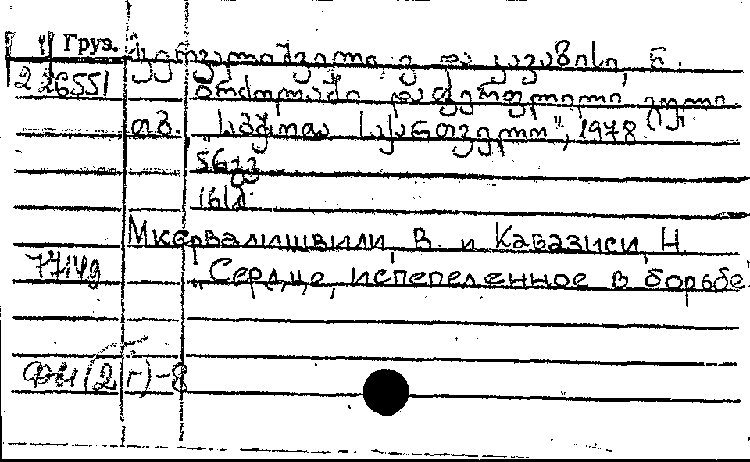 Груз. მკერვალიშვილი, ვ. და კავაზისი, ნ.
2 26551 ბრძოლაში დაფერფლილი გული.
თბ. „საბჭოთა საქართველო", 1978
56გვ
161მ
Мкервалишвили, В. и Кавазиси, Н.
77149 „Сердце, испепеленное в борьбе"
(2г)-8